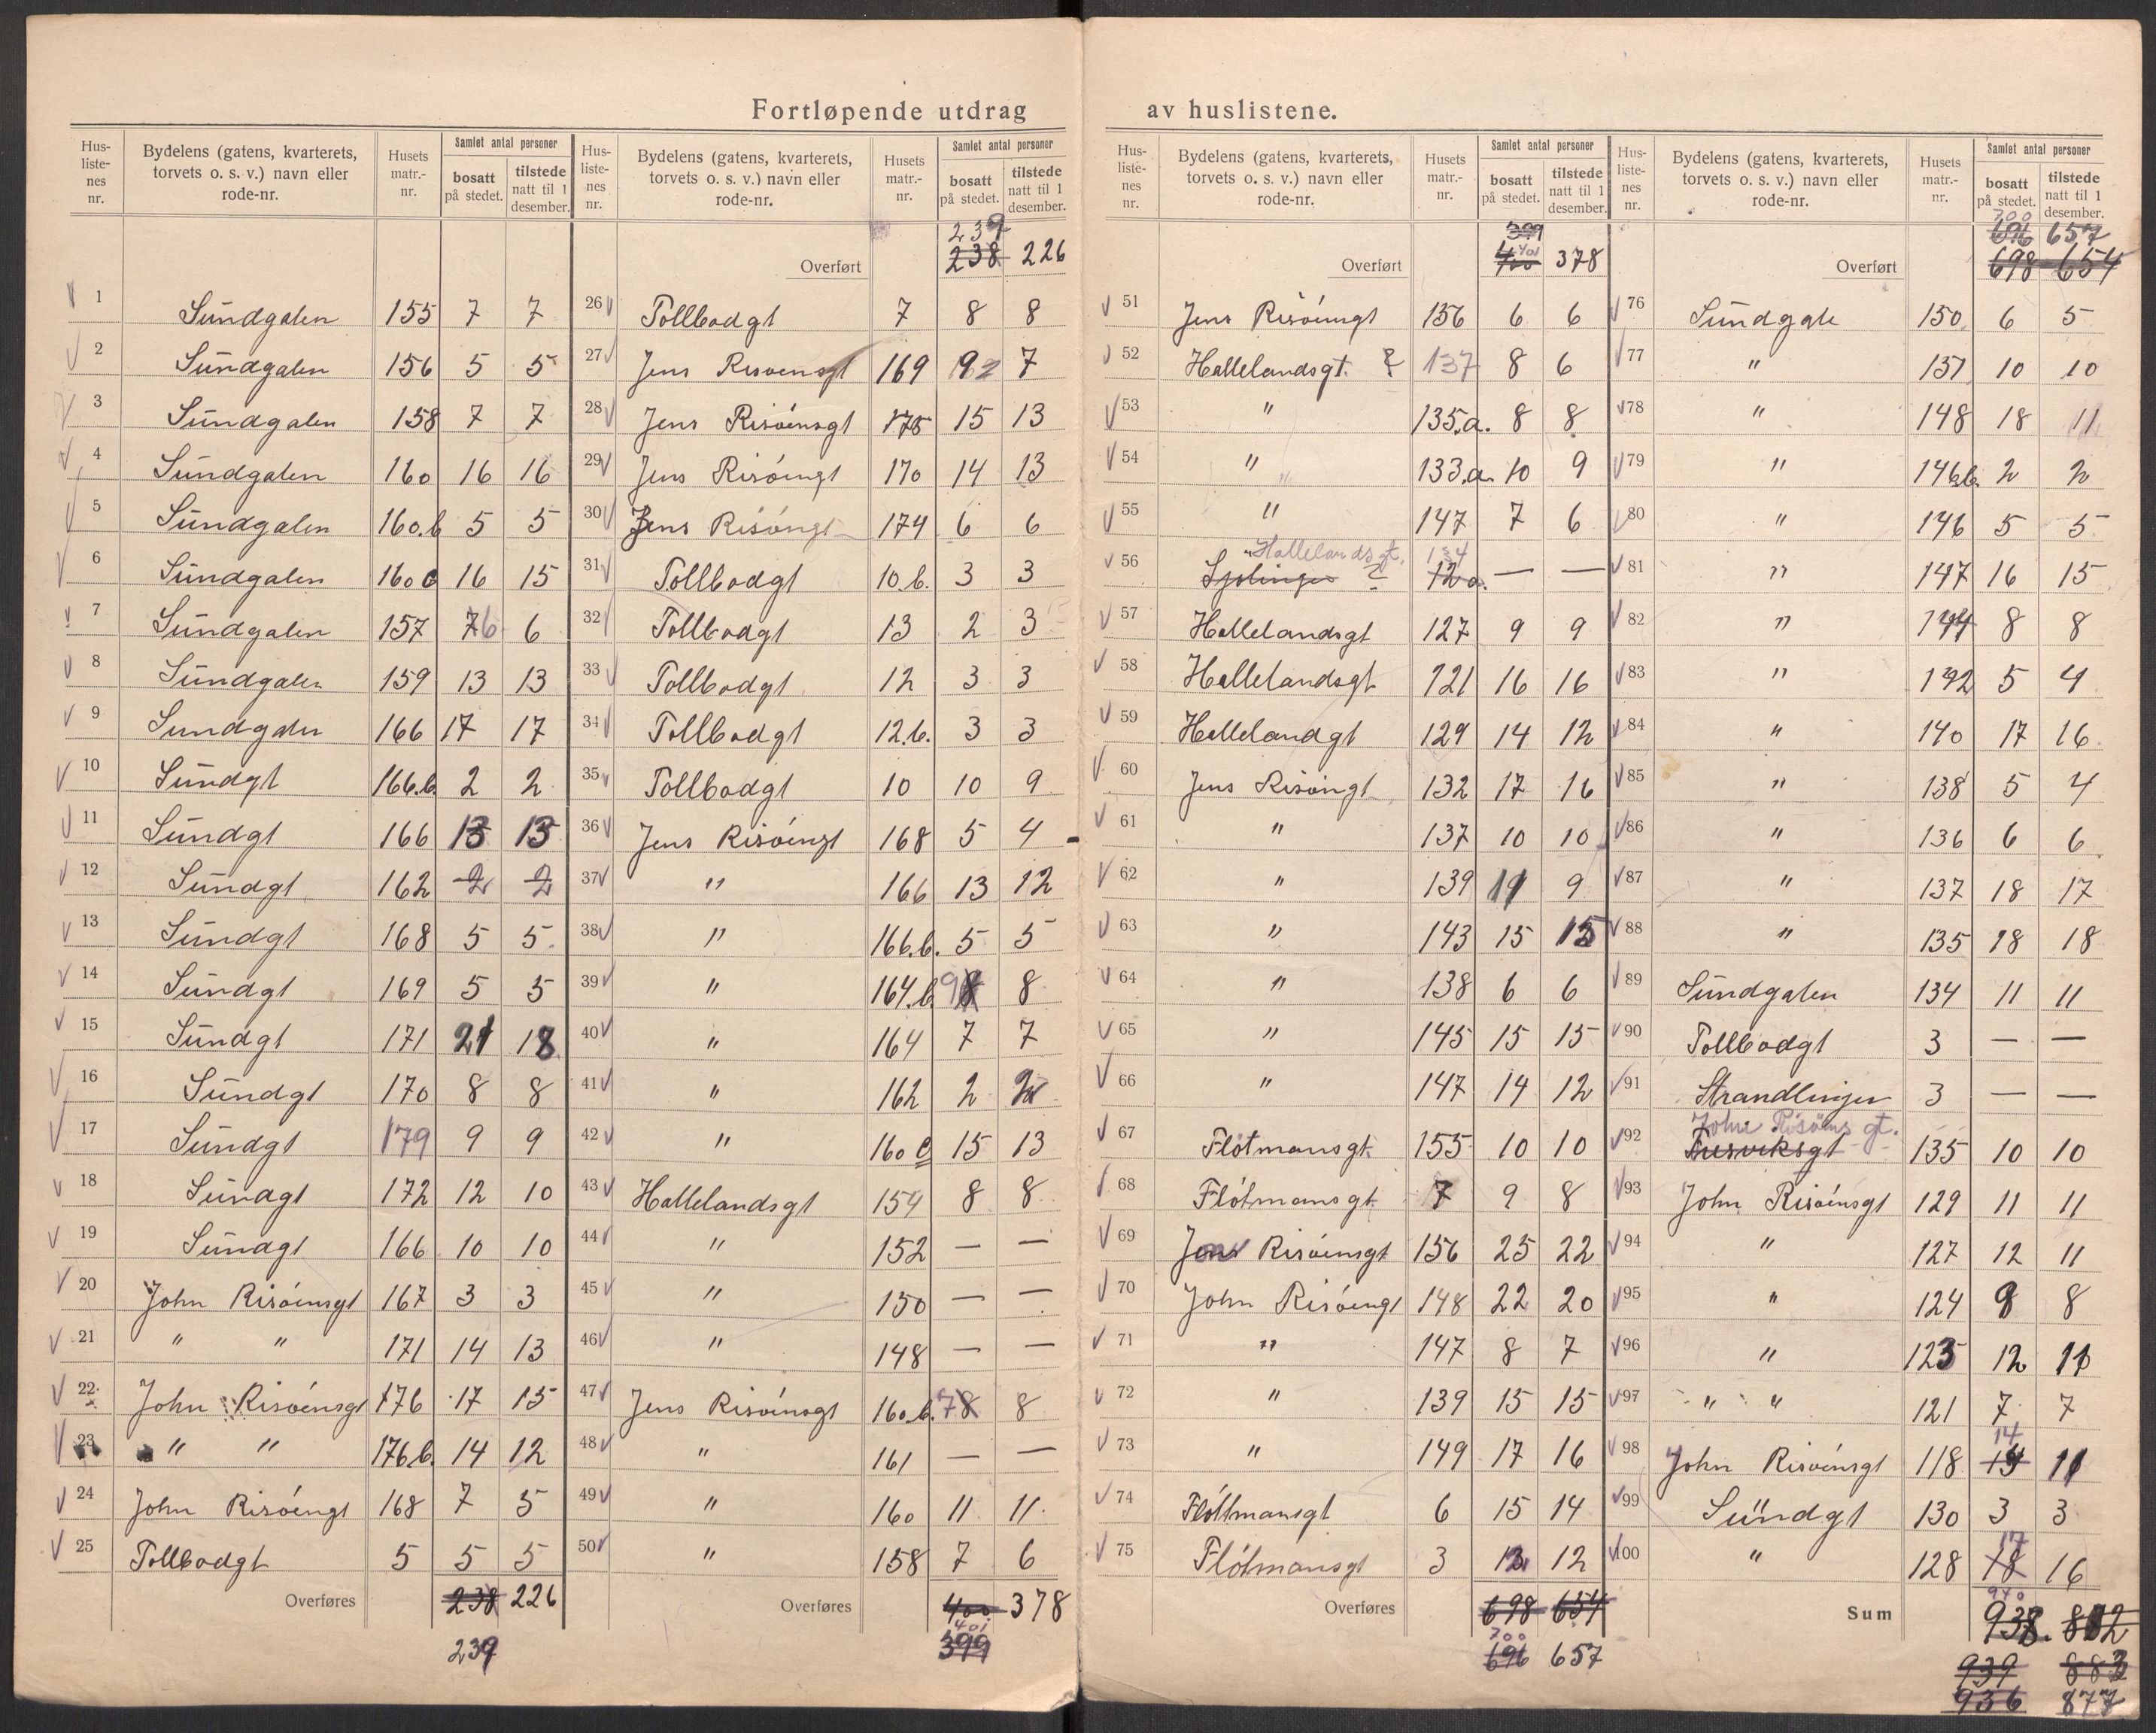 Fortløpende utdrag av huslistene.
Hus-liste-nes nr. | Bydelens (gatens, kvarterets, torvets o. s. v.) navn eller rode-nr. | Husets matr.-nr. | Samlet antal personer | bosatt på stedet. | tilstede natt til 1 desember.
1 Sundgaten 155 7 7
2 Sundgaten 156 5 5
3 Sundgaten 158 7 7
4 Sundgaten 160 16 16
5 Sundgaten 160.b 5 5
6 Sundgaten 160 c 16 15
7 Sundgaten 157 7 6 6
8 Sundgaten 159 13 13
9 Sundgaten 166 17 17
10 Sundgt 166.b. 2 2
11 Sundgt 166 13 13
12 Sundgt 162 2 2
13 Sundgt 168 5 5
14 Sundgt 169 5 5
15 Sundgt 171 21 18
16 Sundgt 170 8 8
17 Sundgt 179 9 9
18 Sundgt 172 12 10
19 Sundgt 166 10 10
20 John Risöensgt 167 3 3
21 " " 171 14 13
22 John Risöensgt 176 17 15
23 " " 176b. 14 12
24 John Risöengt 168 7 5
25 Tollbodgt 5 5 5
Overføres 238 226
239
Hus-liste-nes nr. | Bydelens (gatens, kvarterets, torvets o. s. v.) navn eller rode-nr. | Husets matr.-nr. | Samlet antal personer | bosatt på stedet. | tilstede natt til 1 desember.
239
Overført 238 226
26 Tollbodgt 7 8 8
27 Jens Risoensgt 169 9 7
28 Jens Risöensgt 175 15 13
29 Jens Risöengt 170 14 13
30 Jens Risöngt 174 6 6
31 Tollbodgt 10.b. 3 3
32 Tollbodgt 13 2 3
33 Tollbodgt 12 3 3
34 Tollbodgt 12.b. 3 3
35 Tollbodgt 10 10 9
36 Jens Risöengt 168 5 4
37 " 166 13 12
38 " 166.b. 5 5
39 " 164.b 9 8 8
40 " 164 7 7
41 " 162 2 2
42 " 160 c 15 13
43 Hallelandsgt 154 8 8
44 " 152 — —
45 " 150 — —
46 " 148 — —
47 Jens Risöensgt 160.b. 7 8 8
48 " 161 — —
49 " 160 11 11
50 " 158 7 6
Overføres 400 378
401
399
Hus-liste-nes nr. | Bydelens (gatens, kvarterets, torvets o. s. v.) navn eller rode-nr. | Husets matr.-nr. | Samlet antal personer | bosatt på stedet. | tilstede natt til 1 desember.
399
Overført 400 401 378
51 Jens Risöengt 156 6 6
52 Hallelandsgt. ? 137 8 6
53 " 135.a. 8 8
54 " 133.a. 10 9
55 " 147 7 6
Hallelandsgt. 134
56 ? 12 a. — —
57 Hallelandsgt 127 9 9
58 Hallelandsgt 121 16 16
59 Hallelandgt 129 14 12
60 Jens Risöingt 132 17 16
61 " 137 10 10
62 " 139 11 9
63 " 143 15 15
64 " 138 6 6
65 " 145 15 15
66 " 147 14 12
67 Flotmansgt. 155 10 10
68 Flötmansgt. 7 9 8
69 Jens Risöensgt 156 25 22
70 John Risöengt 148 22 20
71 " 147 8 7
72 " 139 15 15
73 " 149 17 16
74 Flöttmansgt 6 15 14
75 Flötmansgt 3 12 12
Overføres 698 654
700
696 657
Hus-liste-nes nr. | Bydelens (gatens, kvarterets, torvets o. s. v.) navn eller rode-nr. | Husets matr.-nr. | Samlet antal personer | bosatt på stedet. | tilstede natt til 1 desember.
700
696 657
Overført 698 654
76 Sundgate 150 6 5
77 " 151 10 10
78 " 148 18 11
79 " 146.b. 2 2
80 " 146 5 5
81 " 147 16 15
82 " 144 8 8
83 " 142 5 4
84 " 140 17 16
85 " 138 5 4
86 " 136 6 6
87 " 137 18 17
88 " 135 18 18
89 Sundgaten 134 11 11
90 Tollbodgt 3 — —
91 Strandlinjen 3 — —
John Risöens gt.
92 135 10 10
93 John Risöensgt 129 11 11
94 " 127 12 11
95 " 124 9 8
96 " 123 12 11
97 " " 121 7 7
14
98 John Risöensgt 118 11
99 Sundgt 130 3 3
17
100 " 128 18 16
940
Sum 938. 882
939 883
936 877